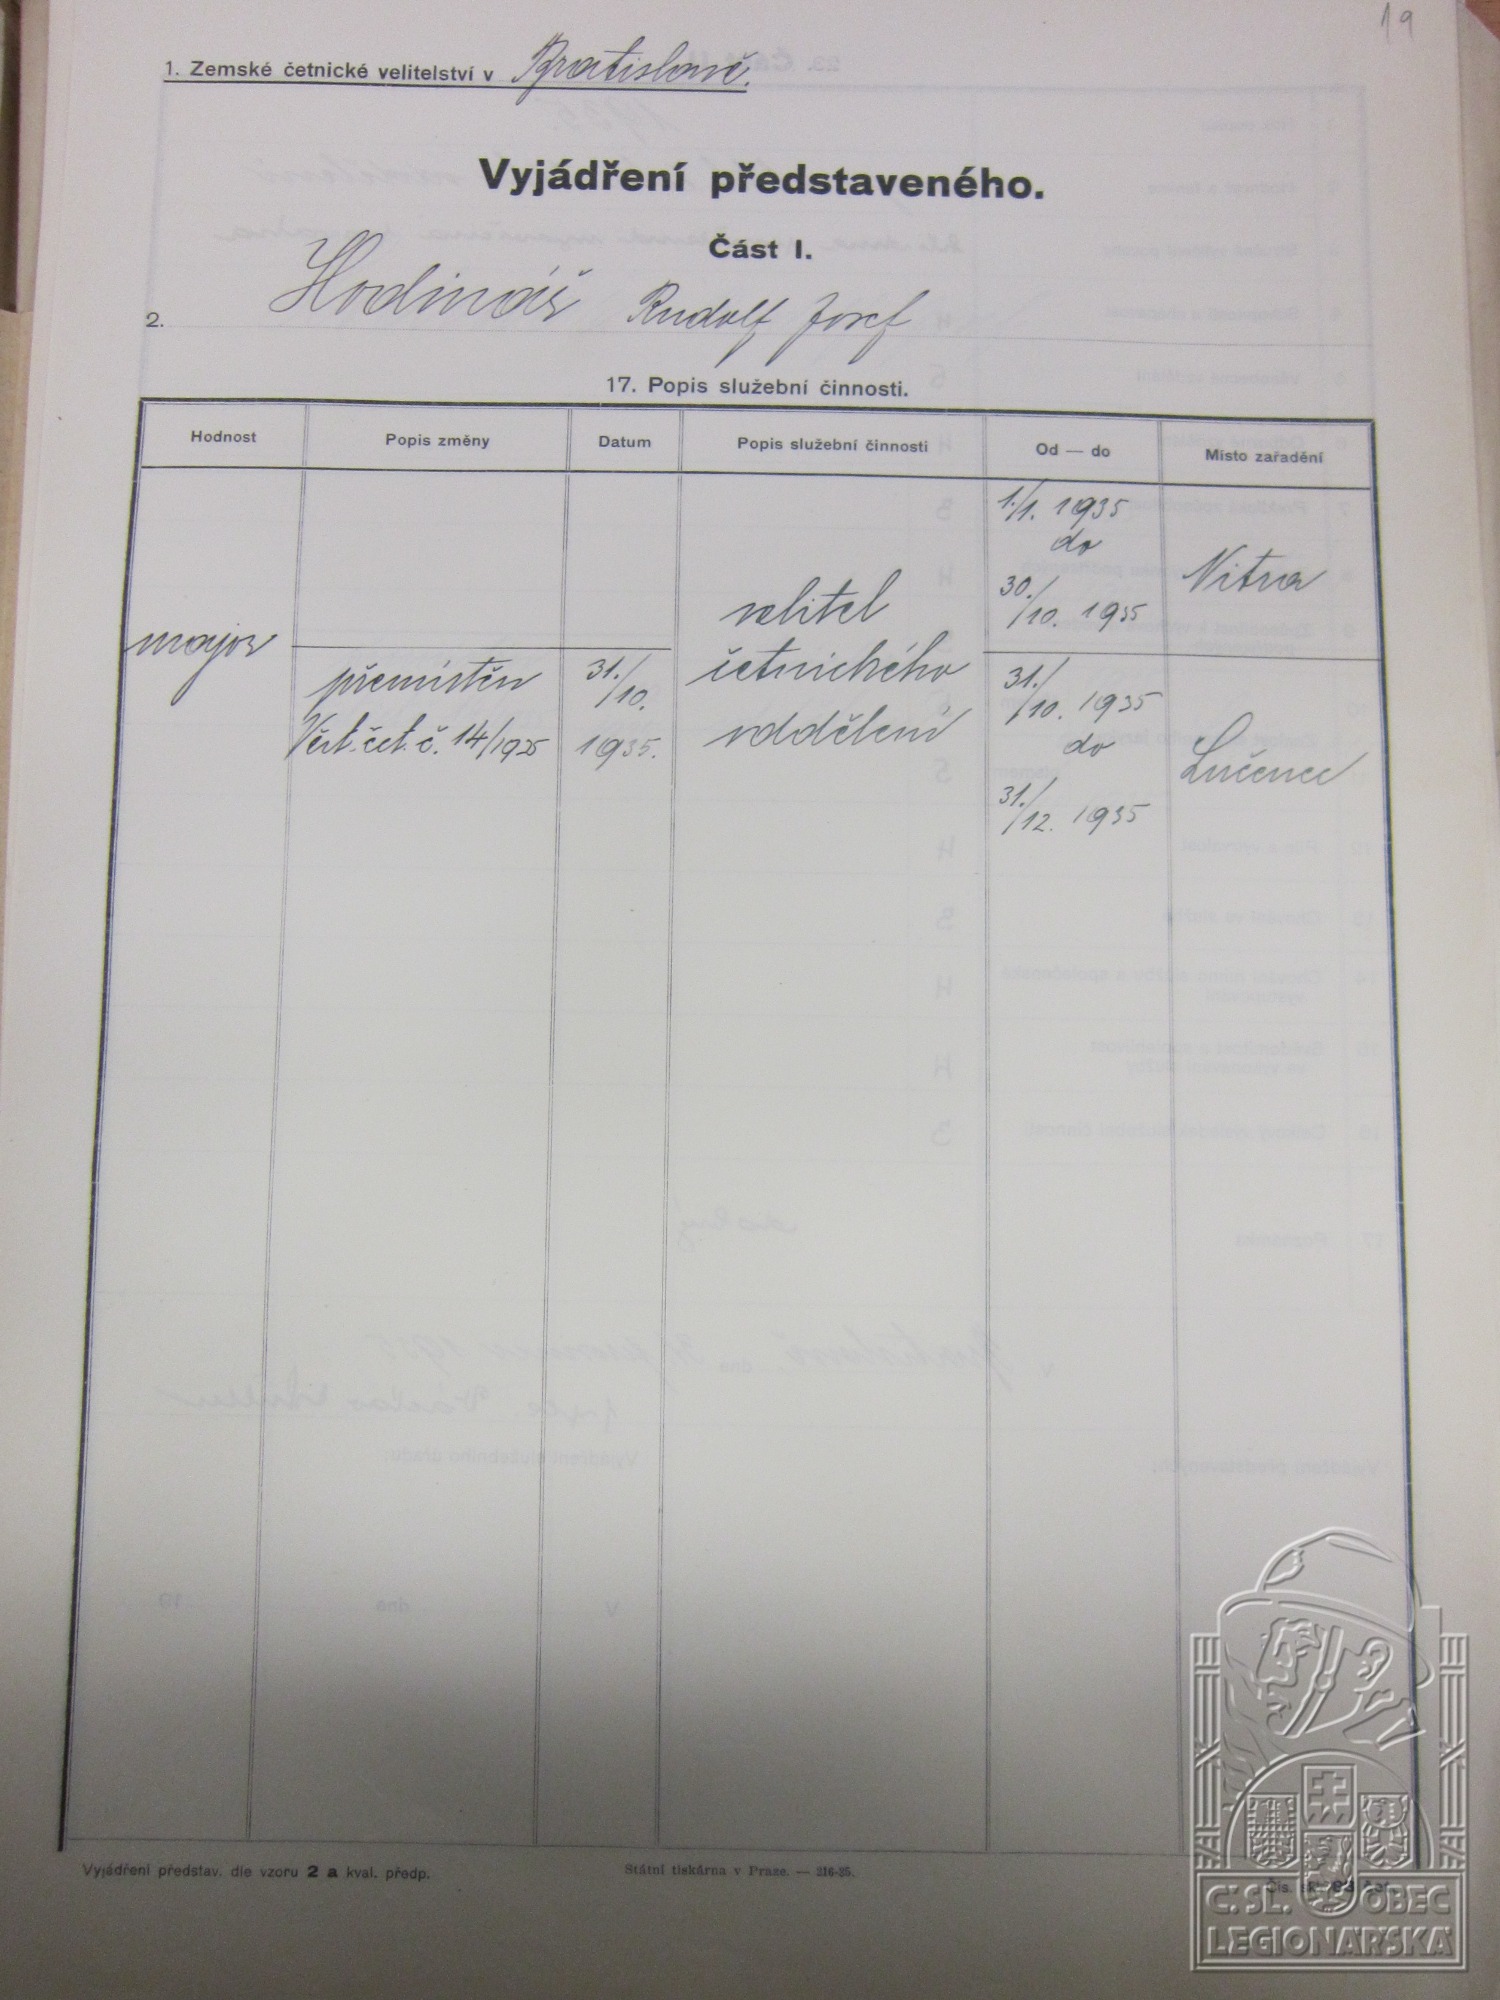 19
1. Zemské četnické velitelství v Bratislavě.
Vyjádření představeného.
Část I.
2. Hodinář Rudolf Josef
17. Popis služební činnosti.
Hodnost Popis změny Datum Popis služební činnosti Od — do Místo zařadění
1./1. 1935
do
30./10. 1935
Nitra
major
velitel
četnického
oddělení
přemístěn
Věst. čet. č. 14/1935
31./10.
1935.
31./10. 1935
do
31./12. 1935
Lučenec
Vyjádření představ. dle vzoru 2 a kval. předp.
Státní tiskárna v Praze. — 216-35.
Čís. skl.
čet.
Č.SL. OBEC
LEGIONÁŘSKÁ